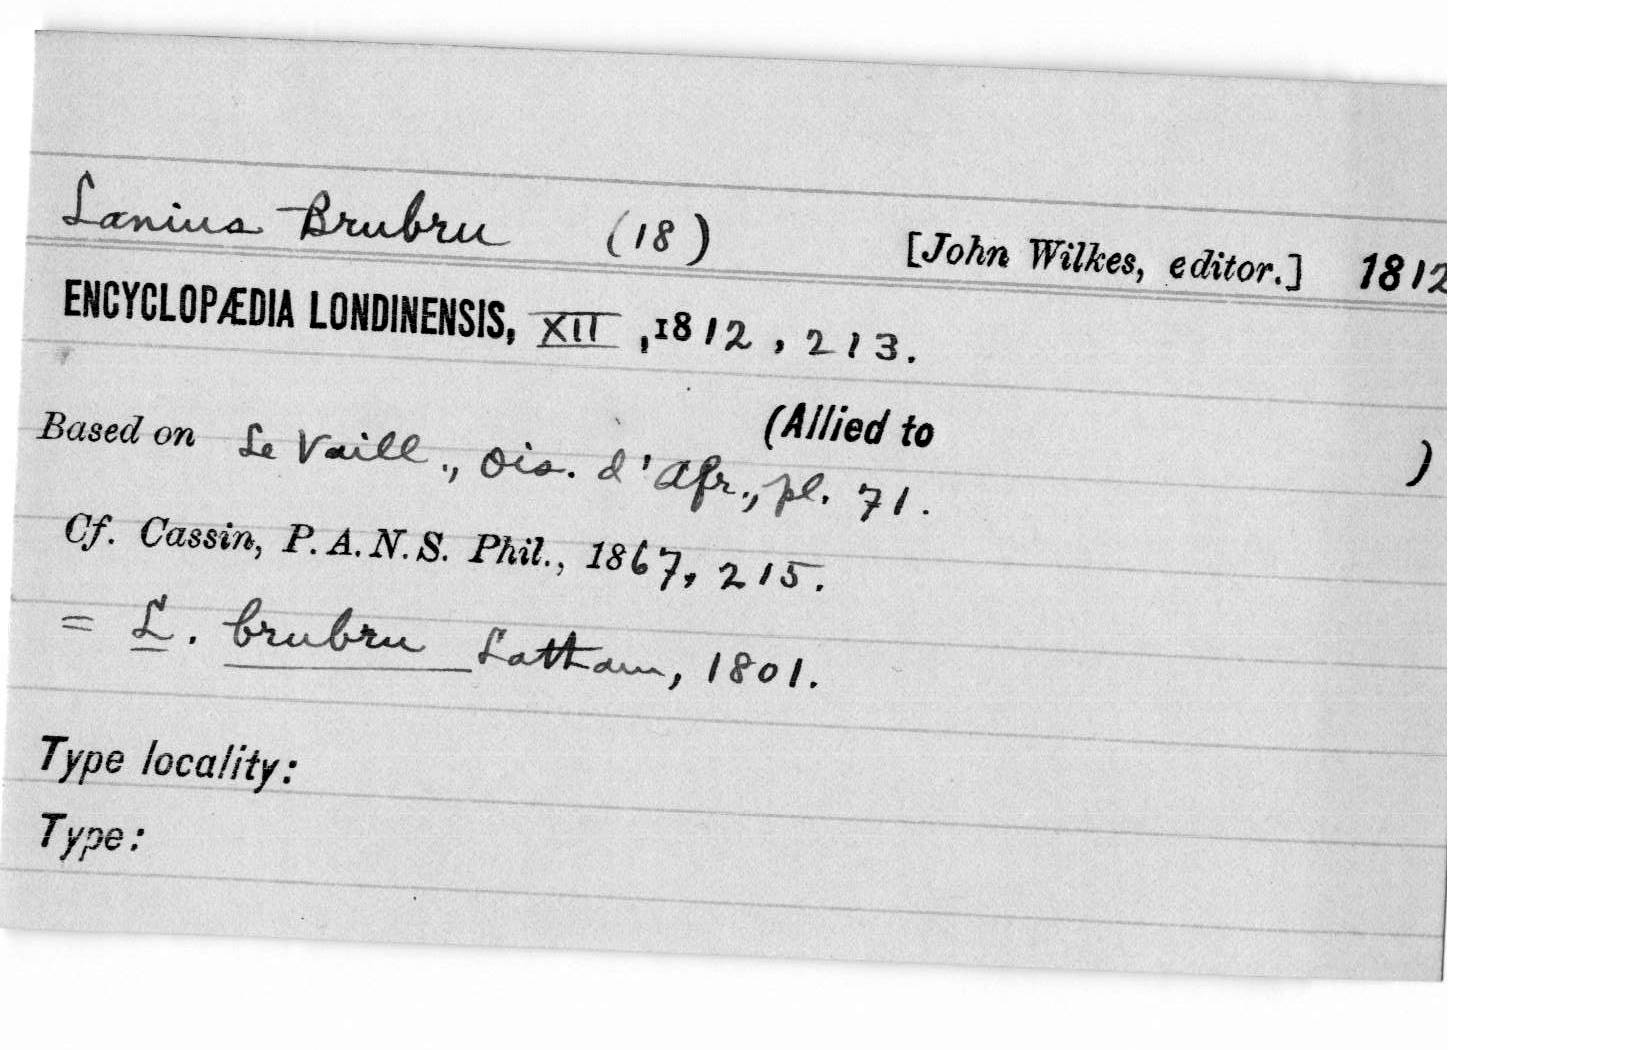 Lanius Brubru (18) [John Wilkes, editor.] 1812
ENCYCLOPÆDIA LONDINENSIS, XII, 1812, 213.
(Allied to )
Based on Le Vaill., Ois. d'Afr., pl. 71.
Cf. Cassin, P. A. N. S. Phil., 1867, 215.
= L. brubru Latham, 1801.
Type locality:
Type: